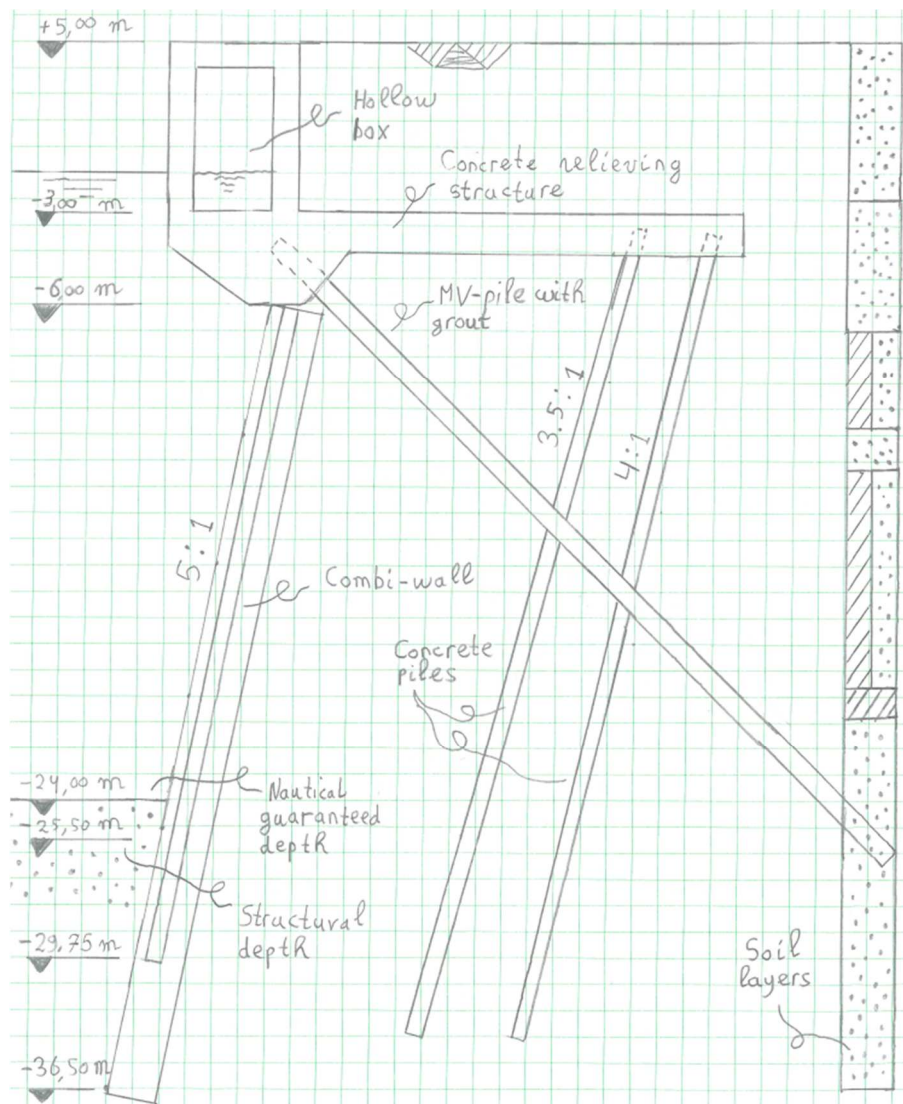 +5,00 m
Hollow
box
Concrete relieving
structure
-3,00 m
-6,00 m
MV-pile with
grout
3.5:1
4:1
5:1
Combi-wall
Concrete
piles
-24,00 m
Nautical
guaranteed
depth
-25,50 m
Structural
depth
-29,75 m
Soil
layers
-36,50 m